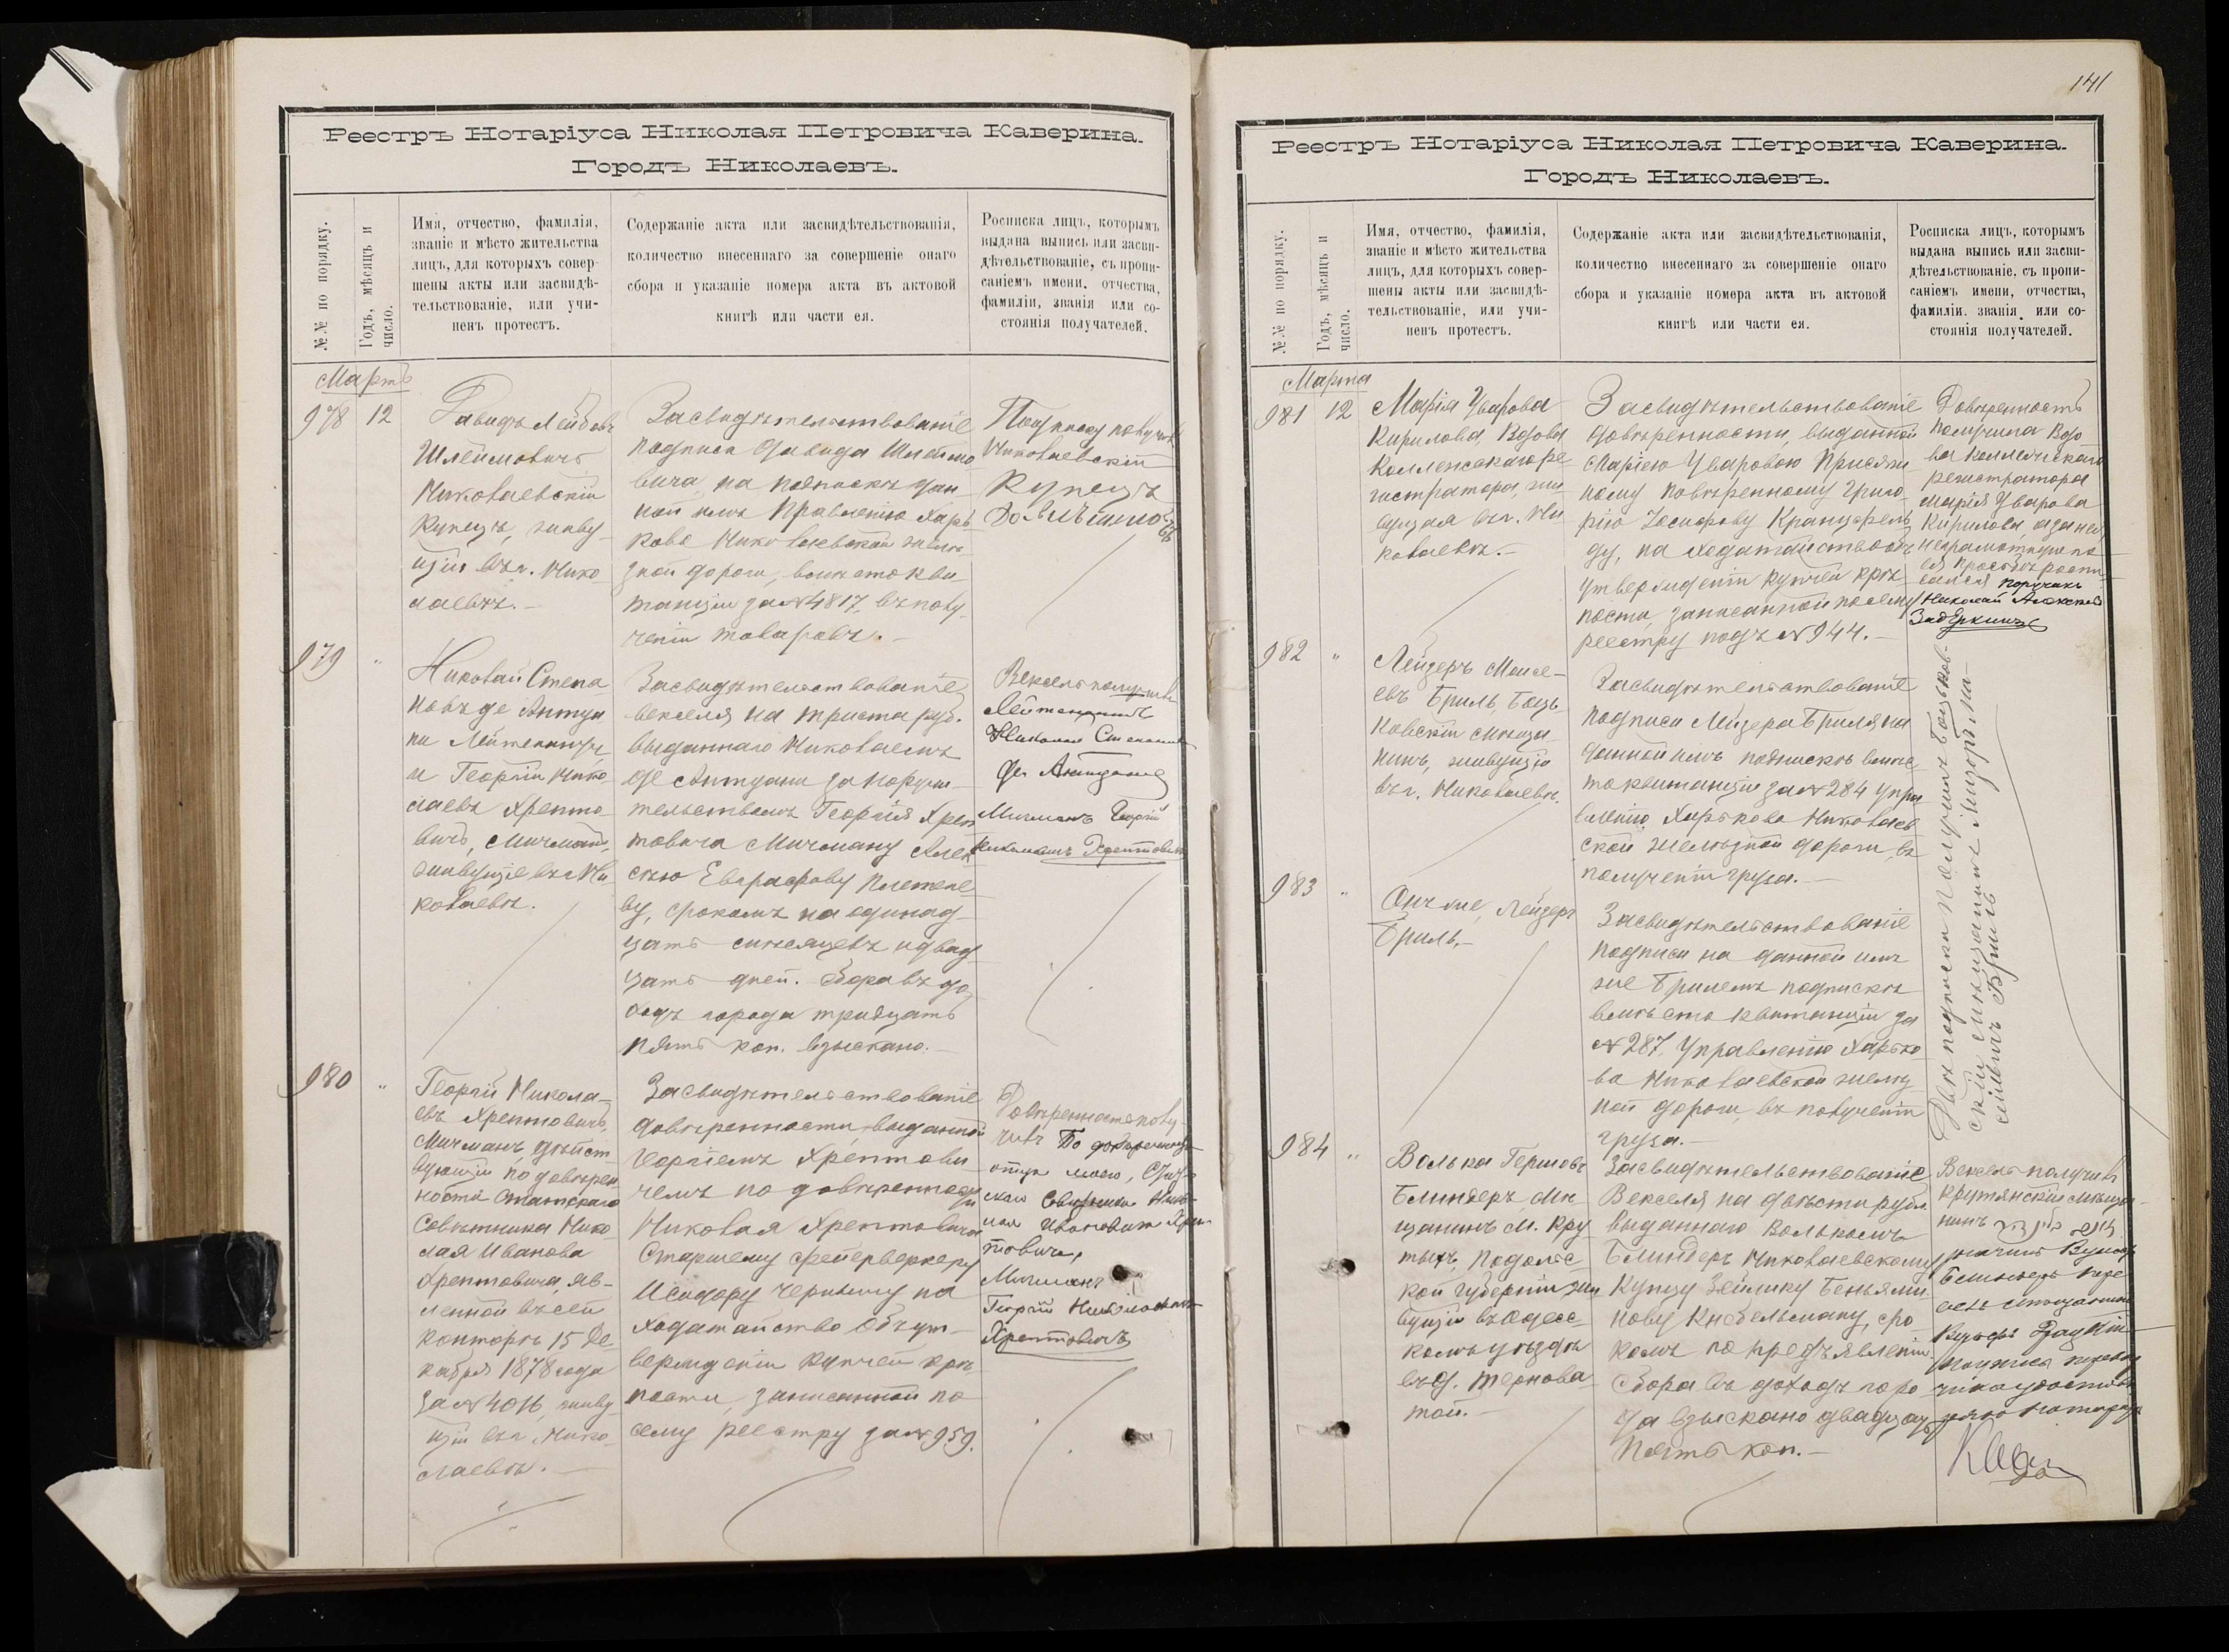 Реестръ Нотаріуса Николая Петровича Каверина.
Городъ Николаевъ.
№№ по порядку.
Годъ, мѣсяцъ и
число.
Имя, отчество, фамилія,
званіе и мѣсто жительства
лицъ, для которыхъ совер-
шены акты или засвидѣ-
тельствованіе, или учи-
ненъ протестъ.
Содержаніе акта или засвидѣтельствованія,
количество внесеннаго за совершеніе онаго
сбора и указаніе номера акта въ актовой
книгѣ или части ея.
Росписка лицъ, которымъ
выдана выпись или засви-
дѣтельствованіе, съ пропи-
саніемъ имени, отчества,
фамиліи, званія или со-
стоянія получателей.
Мартъ
978 12
Давидъ Лейбовъ
Шлеймовичъ
Николаевскій
Купецъ, живу-
щій въ г. Нико
лаевѣ.-
Засвидѣтельствованіе
подписи Давида Шлеймо
вича, на подпискѣ дан
ной имъ Правленію Харь
ково Николаевской желѣ
зной дороги, вмѣсто кви
танціи за № 4817, въ полу-
ченіи товаровъ.-
Подписку получилъ
Николаевскій
Купецъ
979 "
Николай Степа
новъ де Антуа
ни Лейтенантъ
и Георгій Нико
лаевъ Хрепто-
вичъ, Мичманъ,
живущіе въ г. Ни
колаевѣ.
Засвидѣтельствованіе
векселя на триста руб.
выданнаго Николаемъ
де Антуани за поручи-
тельствомъ Георгія Хреп
товича Мичману Алек
сѣю Евграфову Плетене
ву, срокомъ на одинад
цать мѣсяцевъ и двад
цать дней. Сбора въ до
ходъ города тридцать
пять коп. взыскано.-
Вексель получилъ
Лейтенантъ
Николай Степановъ
де Антуани
Мичманъ Георгій
Николаевъ Хрептовичъ
980 "
Георгій Никола-
евъ Хрептовичъ,
Мичманъ, дѣйст
вующій по довѣрен
ности Статскаго
Совѣтника Нико
лая Иванова
Хрептовича, яв-
ленной въ сей
конторѣ 15 Де
кабря 1878 года
за № 4016, живу-
щій въ г. Нико-
лаевѣ.-
Засвидѣтельствованіе
довѣренности, выданной
Георгіемъ Хрептови
чемъ по довѣренности
Николая Хрептовича
Старшему фейерверкеру
Исидору Чернышу на
ходатайство объ ут-
вержденіи купчей крѣ
пости, записанной по
сему реестру за № 959.
Довѣренность полу-
чилъ По довѣренности
отца моего, Стат-
скаго Совѣтника Нико-
лая Ивановича Хреп-
товича,
Мичманъ
Георгій Николаевичъ
Хрептовичъ
141
Реестръ Нотаріуса Николая Петровича Каверина.
Городъ Николаевъ.
№№ по порядку.
Годъ, мѣсяцъ и
число.
Имя, отчество, фамилія,
званіе и мѣсто жительства
лицъ, для которыхъ совер-
шены акты или засвидѣ-
тельствованіе, или учи-
ненъ протестъ.
Содержаніе акта или засвидѣтельствованія,
количество внесеннаго за совершеніе онаго
сбора и указаніе номера акта въ актовой
книгѣ или части ея.
Росписка лицъ, которымъ
выдана выпись или засви-
дѣтельствованіе, съ пропи-
саніемъ имени, отчества,
фамиліи, званія или со-
стоянія получателей.
Марта
981 12
Марія Уварова
Кирилова, Вдова
Коллежскаго ре
гистратора, жи
вущая въ г. Ни
колаевѣ.-
Засвидѣтельствованіе
довѣренности, выданной
Маріею Уваровою Присяж
ному повѣренному Григо
рію Іосифову Кранцфель
ду, на ходатайство объ
утвержденіи купчей крѣ
пости, записанной по сему
реестру подъ № 944.-
Довѣренность
получила Вдо
ва Коллежскаго
регистратора
Марія Уварова
Кирилова, а за нея
неграмотную по
ея просьбѣ распи-
сался поручикъ
Николай Алексѣевъ
982 "
Лейзеръ Моисе-
евъ Бриль, Боць-
ковскій мѣща
нинъ, живущій
въ г. Николаевѣ.
Засвидѣтельствованіе
подписи Лейзера Бриля, на
данной имъ подпискѣ вмѣс
то квитанціи за № 284 упра
вленію Харьково Николаев
ской желѣзной дороги, въ
полученіи груза.-
Двѣ подписки получилъ Боцьков-
скій мѣщанинъ
Бриль
983 "
Онъ же, Лейзеръ
Бриль.-
Засвидѣтельствованіе
подписи на данной имъ
же Брилемъ подпискѣ
вмѣсто квитанціи за
№ 287, Управленію Харько
во Николаевской желѣз
ной дороги, въ полученіи
груза.-
984 "
Волька Гершовъ
Блиндеръ, Мѣ
щанинъ М. Кру
тыхъ, Подольс
кой губерніи, жи
вущій въ Одесс
комъ уѣздѣ
въ д. Тернова
той.-
Засвидѣтельствованіе
Векселя на двѣсти рубл.
выданнаго Волькомъ
Блиндеръ Николаевскому
Купцу Зейлику Беньями
нову Кнебельману, сро
комъ по предъявленіи.
Сбора въ доходъ горо
да взыскано двадцать
пять коп.-
Вексель получилъ
Крутянскій мѣща-
нинъ
значитъ Вулфъ
Блиндеръ пере
велъ мѣщанинъ